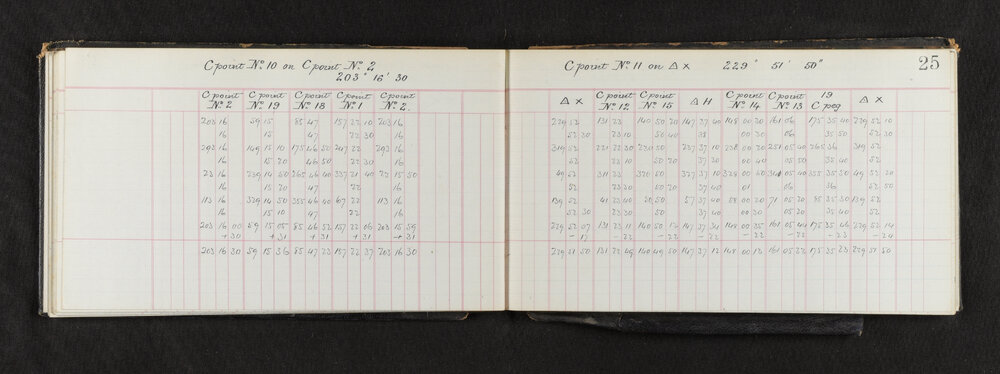 C point No. 10 on C point No. 2
203° 16' 30
C point No. 2 C point No. 19 C point No. 18 C point No. 1 C point No. 2
203 16 59 15 85 47 157 22 10 203 16
16 15 47 22 30 16
293 16 149 15 10 175 46 50 247 22 292 16
16 15 20 46 50 22 30 16
23 16 239 14 50 265 46 40 337 21 40 22 15 50
16 15 20 47 22 16
113 16 329 14 50 355 46 40 67 22 113 16
16 15 10 47 22 16
203 16 00 59 15 05 85 46 52 157 22 06 203 15 59
+30 +31 +31 +31 +31
203 16 30 59 15 36 85 47 23 157 22 37 203 16 30
25
C point No. 11 on Δ X 229° 51' 50"
Δ X C point No. 12 C point No. 15 Δ H C point No. 14 C point No. 13 19 C peg Δ X
229 52 131 23 140 50 20 147 37 40 148 00 20 161 06 175 35 40 229 52 10
52 30 23 10 50 40 38 00 30 06 35 50 52 30
319 52 221 22 30 230 50 237 37 10 238 00 20 251 05 40 265 36 319 52
52 23 10 50 20 37 30 00 40 05 50 35 40 52
49 52 311 23 320 50 327 37 10 328 00 50 341 05 40 355 35 30 49 52 20
52 23 20 50 20 37 40 01 06 36 52 50
139 52 41 22 40 50 50 57 37 40 58 00 20 71 05 20 85 35 30 139 52
52 30 23 30 50 37 40 00 30 05 20 35 40 52
229 52 07 131 23 11 140 50 12 147 37 34 148 00 35 161 05 44 175 35 46 229 52 14
-17 -22 -22 -22 -22 -22 -23 -24
229 51 50 131 22 49 140 49 50 147 37 12 148 00 13 161 05 22 175 35 23 229 51 50